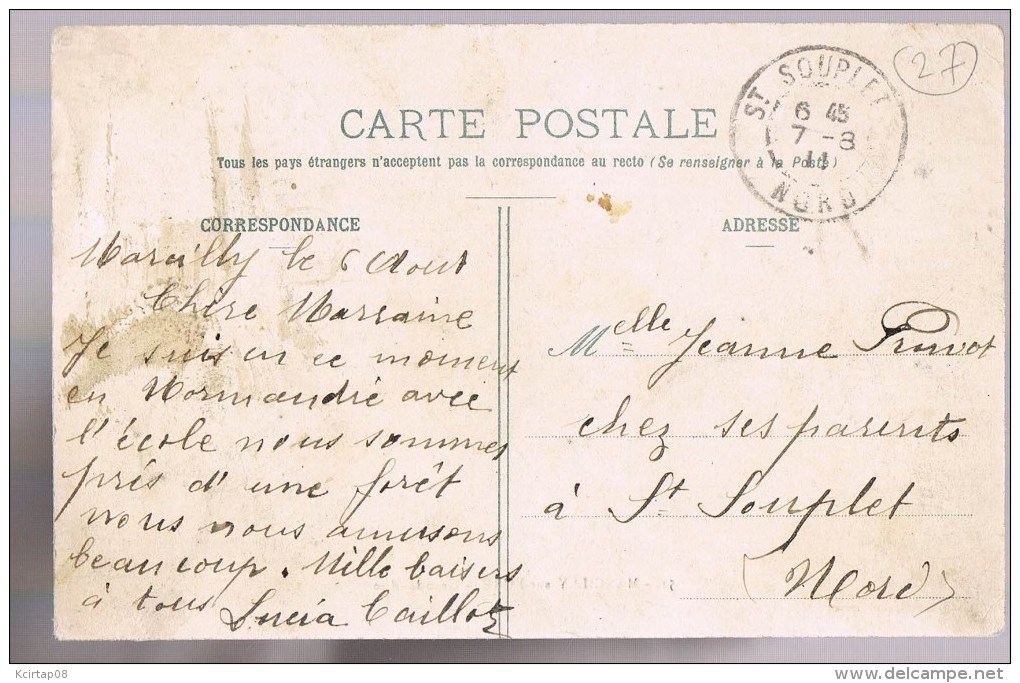 CARTE POSTALE
Tous les pays étrangers n'acceptent pas la correspondance au recto (Se renseigner à la Poste)
ST SOUPLET
6 45
7 - 8
11
NORD
27
CORRESPONDANCE
Marcilly le 6 Aout
Chère Marraine
Je suis en ce moment
en Normandie avec
l'école nous sommes
près d'une forêt
nous nous amusons
beaucoup. Mille baisers
à tous Lucia Caillot
ADRESSE
Melle Jeanne Pruvot
chez ses parents
à St Souplet
(Nord)
Kcirtap08
www.delcampe.net